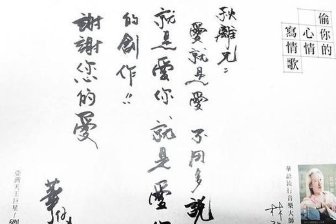 偷你的
心情
寫情歌
秋離兄：
愛就是愛 不用多說
就是愛你 就是愛你
的創作!!
謝謝您的愛
華語流行音樂大師
亞洲天王巨星